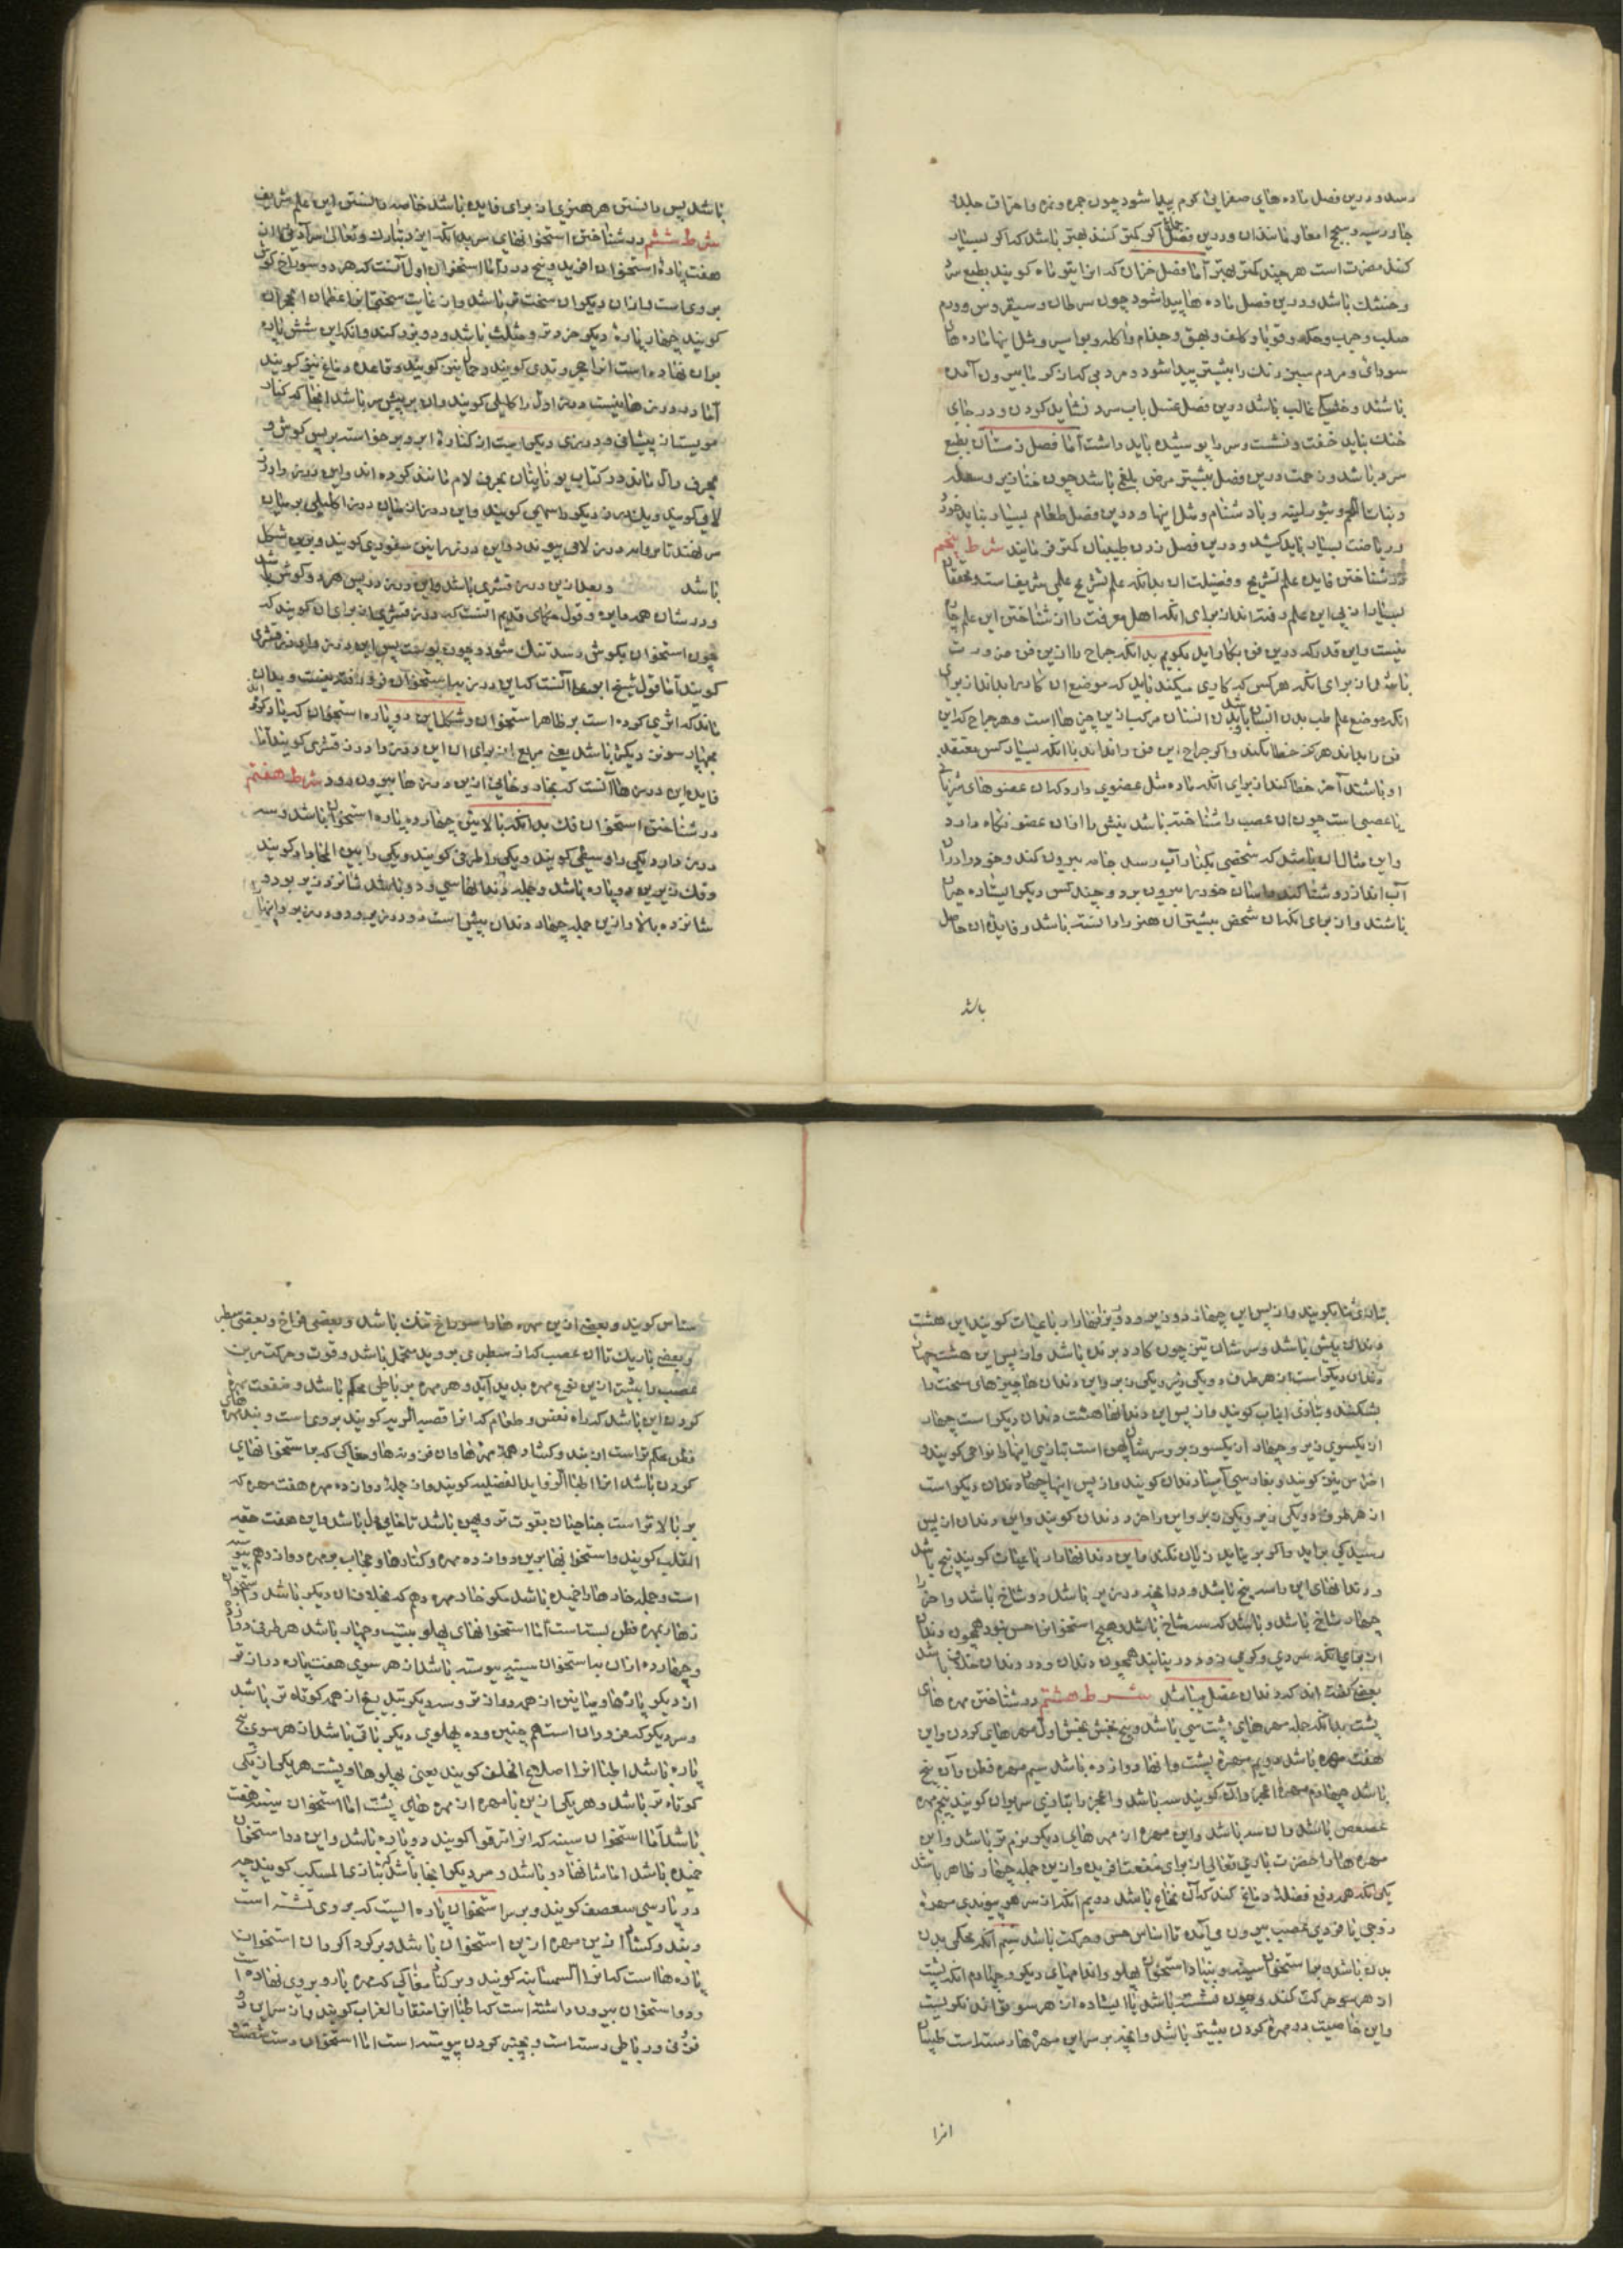 رسد و درین فصل ماده های صفرایی کرم پیدا شود چون جمره و نمره و احراف جلد و
جاورسیه و سحج امعا و مانند ان و درین فصل جماع اکر کمتر کنند بهتر باشد که اکر بسیار
کنند مضرت است هر چند کمتر بهتر اما فصل خزان که انرا تیر ماه کویند بطبع سرد
و خشک باشد و درین فصل ماده ها پیدا شود چون سرطان و سقیروس و ورم
صلب و جرب و حکه و قوبا و کلف و بهق و جذام و اکله و بواسیر و مثل اینها ماده های
سودای و مردم سبز رنک را بیشتر پیدا شود و مردمی که از کرما بیرون آمده
باشند و خشکی غالب باشد درین فصل غسل باب سرد نشاید کردن و در جای
خنک نباید خفت و نشست و سر را پوشیده باید داشت اما فصل زمستان بطبع
سرد باشد و زحمت درین فصل بیشتر مرض بلغمی باشد چون خنازیر و سلعه
و نبات اللحم و بثور لینه و باد شنام و مثل اینها و درین فصل طعام بسیار نباید خورد
و ریاضت بسیار باید کشید و درین فصل زدن طبیبان کمتر فرمایند شرط پنجم
در شناختن فایده علم تشریح و فضیلت ان بدانکه علم تشریح علمی شریف است و محققان
بسیار از پی این علم رفته اند از برای انکه اهل معرفت را از شناختن این علم چاره
نیست و این قدر که درین فن بکار اید بکویم بدانکه جراح را ازین فن ضرورت
باشد از برای انکه هر کس که کاری میکند باید که موضع ان کار را بداند از برای
انکه موضع علم طب بدن انسان باشد و بدن انسان مرکب ازین چیزها است و هر جراح که این
فن را بداند هرکز خطا نکند و اکر جراح این فن را نداند با انکه بسیار کس معتقد
او باشند آخر خطا کند از برای انکه ماده مثل عضوی دارد که ان عضوهای شریانی
یا عصبی است چون ان عصب را شناخته باشد نیش را از ان عضو نکاه دارد
و این مثال ان باشد که شخصی بکنار آب رسد جامه بیرون کند و خود را در ان
آب اندازد و شنا کند و اسان خود را بیرون برد و چند کس دیکر ایستاده حیران
باشند و از برای انکه ان شخص بیشتر ان هنر را دانسته باشد و فایده ان حاصل
باشد
باشد پس دانستن هر هنری از برای فایده باشد خاصه دانستن این علم شریف
شرط ششم در شناختن استخوانهای سر بدانکه ایزد تبارک و تعالی سر آدمی را از
هفت پاره استخوان افرید و پنج درز اما استخوان اول آنست که هر دو سوراخ کوش
بروی است و از ان دیکران سخت تر باشد و از غایت سختی انرا عظمان الحجران
کویند چهار پاره دیکر خردتر و مثلث باشد و دو بزرک کنند و انکه این شش پاره
بران نهاده است انرا حجر وتدی کویند و حمالین کویند و قاعده دماغ نیز کویند
آما در درزها نیست درز اول را کلیلی کویند و ان بر پیش سر باشد انجا که کنار
مویستان پیشانی و درزی دیکر است از کناره ابرو برخواسته بر پس کوش و
بحرف دال ماند و در کتاب یونانیان بحرف لام مانند کرده اند و این درز را درز
لامی کویند و یک درز دیکر را سهمی کویند و این درز از میان درز اکلیلی بر میان
سر نهند تا برابر درز لامی پیوندد و این درز را نیز سفودی کویند و برین شکل
باشد و بعد ازین درز قشری باشد و این درز در پس هر دو کوش باشد
و در شان همه ما بین و قول حکمای قدیم انست که درز قشری از برای ان کویند که
چون استخوان بکوش رسد تنک شود و چون پوست پس این درز را درز قشری
کویند آما قول شیخ ابوعلی آنست که این درز بر استخوان فرو رفته نیست و بدان
ماند که اثری کرده است بر ظاهر استخوان و شکل این دو پاره استخوان که یاد کرده اند
بچهار سوتر دیکر باشد یعنی مربع از برای ان این درز را درز قشری کویند اما
فایده این درزها آنست که بخار دخانی ازین درزها بیرون رود شرط هفتم
در شناختن استخوان فک بدانکه بالایش چهارده پاره استخوان باشد و سه
درز دارد یکی را وسطی کویند و یکی را طرفی کویند و یکی را بین الحادار کویند
و فک زیرین دو پاره باشد و جمله دندانها سی و دو باشد شانزده زیر بود و
شانزده بالا و ازین جمله چهار دندان پیشین است دو در زیر و دو در زبر و اینها
بتازی ثنایا کویند و از پس این چهار دو زیر و دو زبر انها را رباعیات کویند این هشت
دندان پیش باشد و سرشان تیز چون کارد برنده باشد و از پس این هشت چهار
دندان دیکر است از هر طرف دو یکی زبر و یکی زیر و این دندان ها چیزهای سخت را
بشکند و بتازی انیاب کویند و از پس این دندانها هشت دندان دیکر است چهار
از یکسوی زیر و چهار از یکسو زبر و سرشان پهن است بتازی اینها را نواجد کویند و
اضراس نیز کویند و بفارسی آسیا دندان کویند و از پس اینها چهار دندان دیکر است
از هر طرف دو یکی زیر و یکی زبر و این را خرد دندان کویند و این دندان از پس
رسیدکی براید و اکر بر نیاید زیان نکند و این دندانها را رباعیات کویند بیخ باشد
و دندانهای این را سه بیخ باشد و در انچه درز بر باشد دو شاخ باشد و اخر را
چهار شاخ باشد و باشد که سه شاخ باشد و هیچ استخوانرا حس نبود همچون دندان
از برای انکه سردی و کرمی زود دریابند همچون دندان و در دندان خلافی باشد
بعضی کفته اند که دندان عقل میباشد شرط هشتم در شناختن مهره های
پشت بدانکه جمله مهره های پشت سی باشد و پنج بخش بخش اول مهره های کردن و این
هفت مهره باشد دویم مهره پشت و انها دوازده باشد سیم مهره قطن و آن پنج
باشد چهارم مهره عجز و آن کویند سه باشد و عجز را بتازی سریوان کویند پنجم مهره
عصعص باشد و ان سه باشد و این مهره از مهره های دیکر نرم تر باشد و این
مهره ها را حضرت باری تعالی از برای منفعت افریده و ازین جمله چهار ظاهر باشد
یکی انکه همه دفع فضله دماغ کند که آن نخاع باشد دویم انکه از سر هر پیوندی مهره
زوجی یا فردی عصب بیرون می آید تا اساس حس و حرکت باشد سیم انکه محکمی بدن
بدن باشد و بر استخوان سینه و بنیاد استخوان پهلو و اندامهای دیکر و چهارم انکه پشت
از هر سو حرکت کند و چون نشسته باشد یا ایستاده از هر سو تواند نکریست
و این خاصیت در مهره کردن بیشتر باشد و انچه بر سر این مهره ها رسته است طبیبان
انرا
سناسن کویند و بعضی ازین مهره ها را سوراخ تنک باشد و بعضی فراخ و بعضی سطبر
و بعضی باریک تا ان عصب که از سطبری بروید متحمل باشد و قوت و حرکت مر
عصب را بیشتر ازین نوع مهره پدید آید و هر مهره بر رباطی محکم باشد و منفعت مهره های
کردن این باشد که راه نفس و طعام که انرا قصبة الریه کویند بروی است و بند مهره
قطن محکم تر است از بند و کشاد همه مهرها و ان فزونها و مغاکی که بر استخوانهای
کردن باشد انرا اطبا الزواید المفصلیه کویند و از جمله دوازده مهره هفت مهره که
بر بالاتر است جناحیان بقوت تر و پهن باشد تا جای دل باشد و این هفت حقه
القلب کویند و استخوانها برین دوازده مهره و کنارها و جناب بر مهره دوازدهم پیوسته
است و جمله خارها را خمیده باشد مکر خار مهره دهم که بخلاف ان دیکر باشد و استخوان
زهار بمهره قطن بسته است اما استخوانهای پهلو بیست و چهار باشد هر طرفی دوازده
و چهارده از ان بر استخوان سینه پیوسته باشد از هر سوی هفت پاره درازتر
از دیکر پارها و میانین از همه درازتر و سه دیکر یعنی از همه کوتاه تر باشد
و سه دیکر که فرود ان است هم چنین و ده پهلوی دیکر باقی باشد از هر سوی پنج
پاره باشد اطبا انرا اضلاع الخلف کویند یعنی پهلوها و پشت هر یکی از یکی
کوتاه تر باشد و هر یکی ازین با مهره از مهره های پشت اما استخوان سینه هفت
باشد آما استخوان سینه که انرا ترقوا کویند دو پاره باشد و این دو استخوان
خمیده باشد اما شانها دو باشد و سر دیکر انجا باشد که بتازی المنکب کویند چه
در پارسی سعصف کویند و بر سر استخوان پاره ایست که بر وی نشسته است
و بند و کشاد ازین مهره ازین استخوان باشد و بر کرداکرد ان استخوان
پاره ها است که انرا السمسانیه کویند و بر کنار مغاکی که مهره بازو بروی نهاده است
و دو استخوان بیرون داشته است که اطبا انرا منقار الغراب کویند و از سر این دو
فزونی و رباطی رسته است و بچنبر کردن پیوسته است اما استخوان دست شصت و